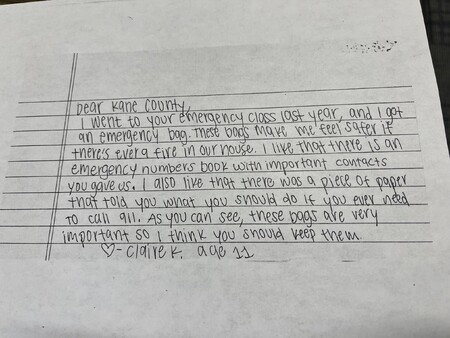 Dear Kane County,
I went to your emergency class last year, and I got
an emergency bag. These bags make me feel safer if
there's ever a fire in our house. I like that there is an
emergency numbers book with important contacts
you gave us. I also like that there was a piece of paper
that told you what you should do if you ever need
to call 911. As you can see, these bags are very
important so I think you should keep them.
♡- Claire K. age 11